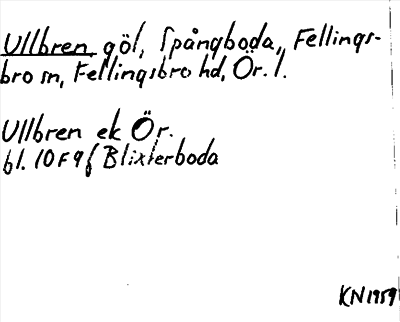 Ullbren göl, Spångboda, Fellings-
bro sn, Fellingsbro hd, Ör. l.
Ullbren ek Ör.
bl. 10F9f Blixterboda
KN1959